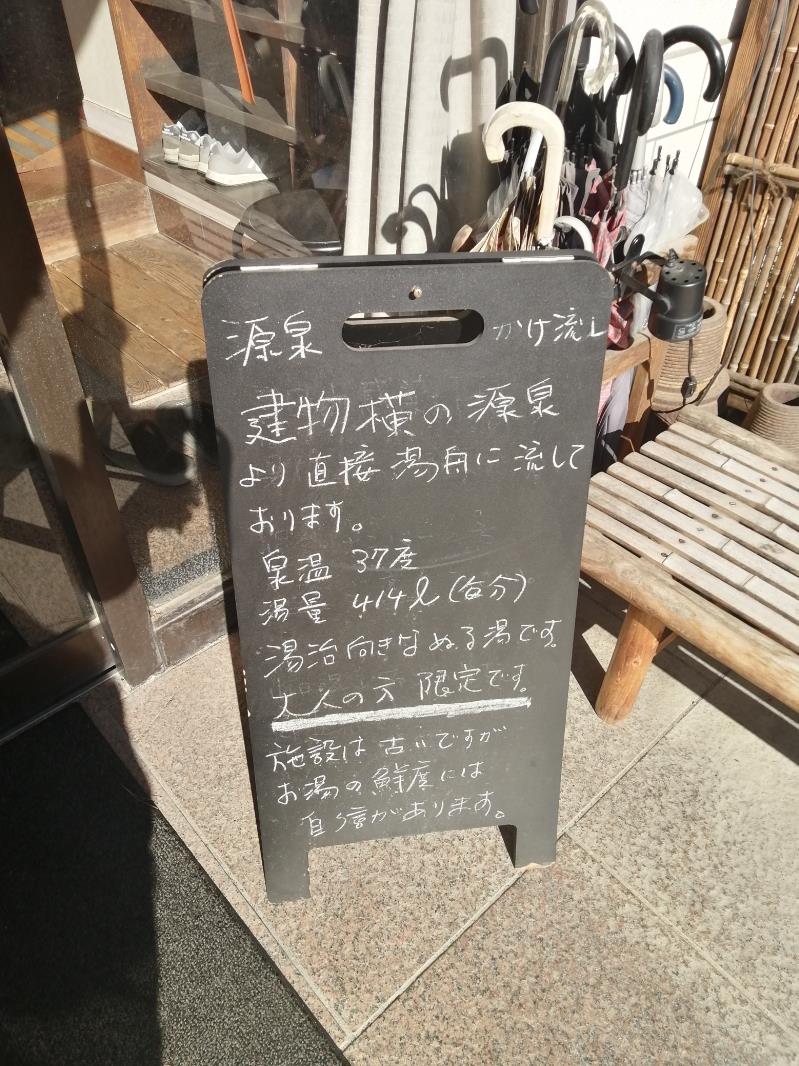 源泉 かけ流し
建物横の源泉
より直接湯舟に流して
おります。
泉温 37度
湯量 414ℓ(毎分)
湯治向きなぬる湯です。
大人の方 限定です。
施設は古いですが
お湯の鮮度には
自信があります。